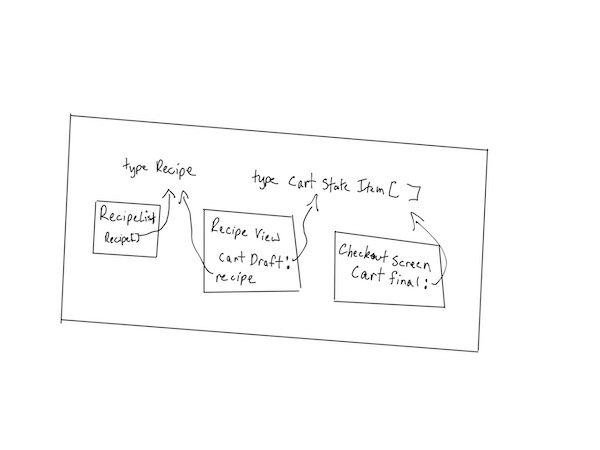 type Recipe
type Cart State Item [ ]
RecipeList
Recipe[]
Recipe View
Cart Draft:
recipe
Checkout Screen
Cart final: